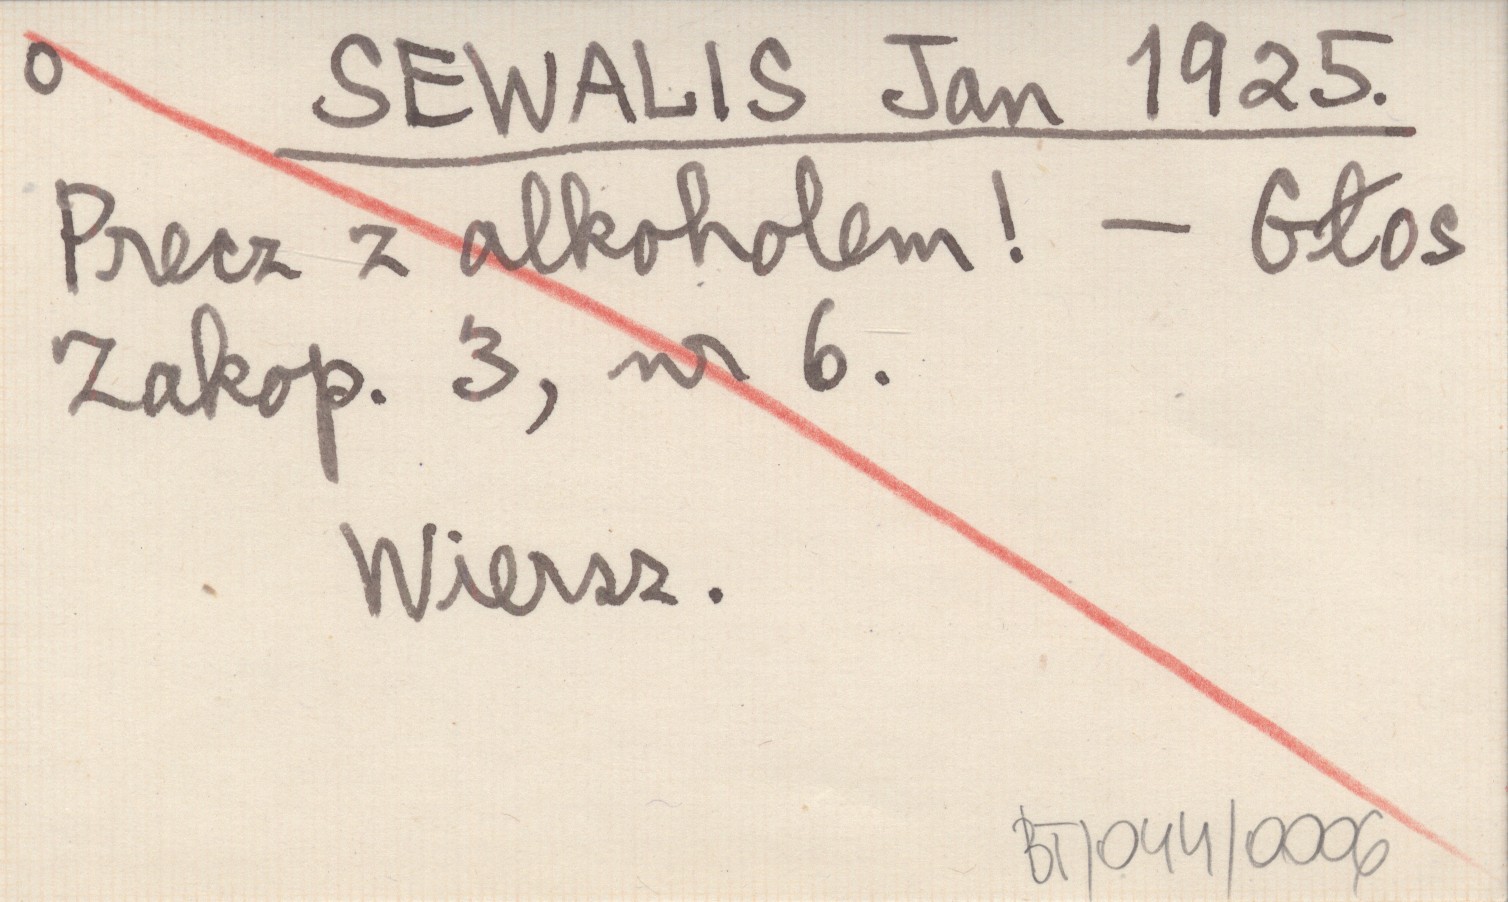 o SEWALIS Jan 1925.
Precz z alkoholem! — Głos
Zakop. 3, nr 6.
Wiersz.
BT/044/0006